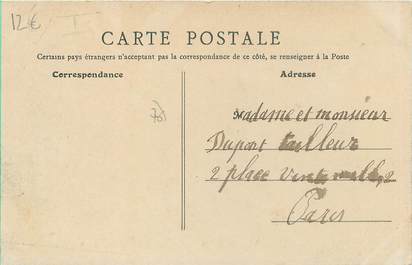 12€ I
CARTE POSTALE
Certains pays étrangers n'acceptant pas la correspondance de ce côté, se renseigner à la Poste
Correspondance
Adresse
Madame et monsieur
Dupont tailleur
2 place
Paris